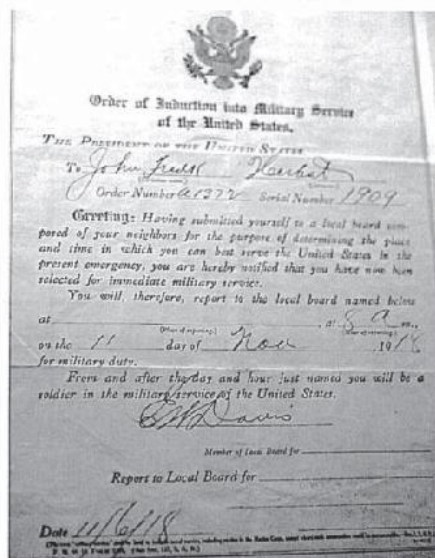 Order of Induction into Military Service
of the United States.
THE PRESIDENT OF THE UNITED STATES
To John Fredk Herbst
Order Number A1372 Serial Number 1909
Greeting: Having submitted yourself to a local board com-
posed of your neighbors for the purpose of determining the place
and time in which you can best serve the United States in the
present emergency, you are hereby notified that you have now been
selected for immediate military service.
You will, therefore, report to the local board named below
at , at 8 a m.,
(Place of reporting.) (Hour of reporting.)
on the 11 day of Nov , 1918
for military duty.
From and after the day and hour just named you will be a
soldier in the military service of the United States.
Davis
Member of Local Board for
Report to Local Board for
Date 11/6/18